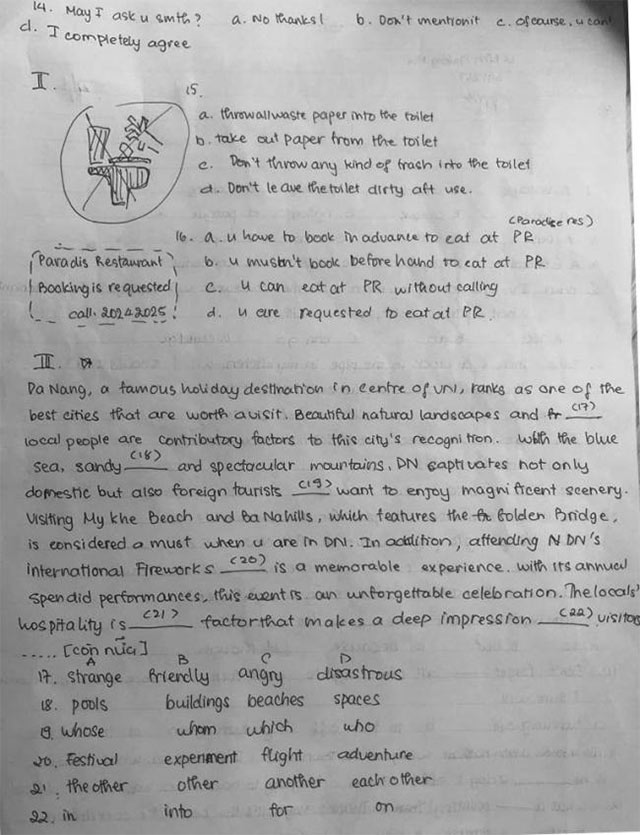 14. May I ask u smth? a. No thanks! b. Don't mentionit c. Ofcourse, u can!
d. I completely agree
II.
15.
a. throwallwaste paper into the toilet
b. take out paper from the toilet
c. Don't throw any kind of trash into the toilet
d. Don't leave the toilet dirty aft use.
(Paradise res)
16. a. u have to book in advance to eat at PR
b. u mustn't book before hand to eat at PR
c. u can eat at PR without calling
d. u are requested to eat at PR.
Paradis Restaurant
Booking is requested
call. 20242025
III.
Da Nang, a famous holiday destination in centre of VN, ranks as one of the
best cities that are worth a visit. Beautiful natural landscapes and (17)
local people are contributory factors to this city's recognition. With the blue
sea, sandy (18) and spectacular mountains, DN captivates not only
domestic but also foreign tourists (19) want to enjoy magnificent scenery.
Visiting My Khe Beach and Ba Nahills, which features the Golden Bridge,
is considered a must when u are in DN. In addition, attending DN's
International Fireworks (20) is a memorable experience. with its annual
spendid performances, this event is an unforgettable celebration. The locals'
hospitality is (21) factor that makes a deep impression (22) visitors
..... [còn nữa]
A B C D
17. strange friendly angry disastrous
18. pools buildings beaches spaces
19. whose whom which who
20. Festival experiment flight adventure
21. the other other another each other
22. in into for on